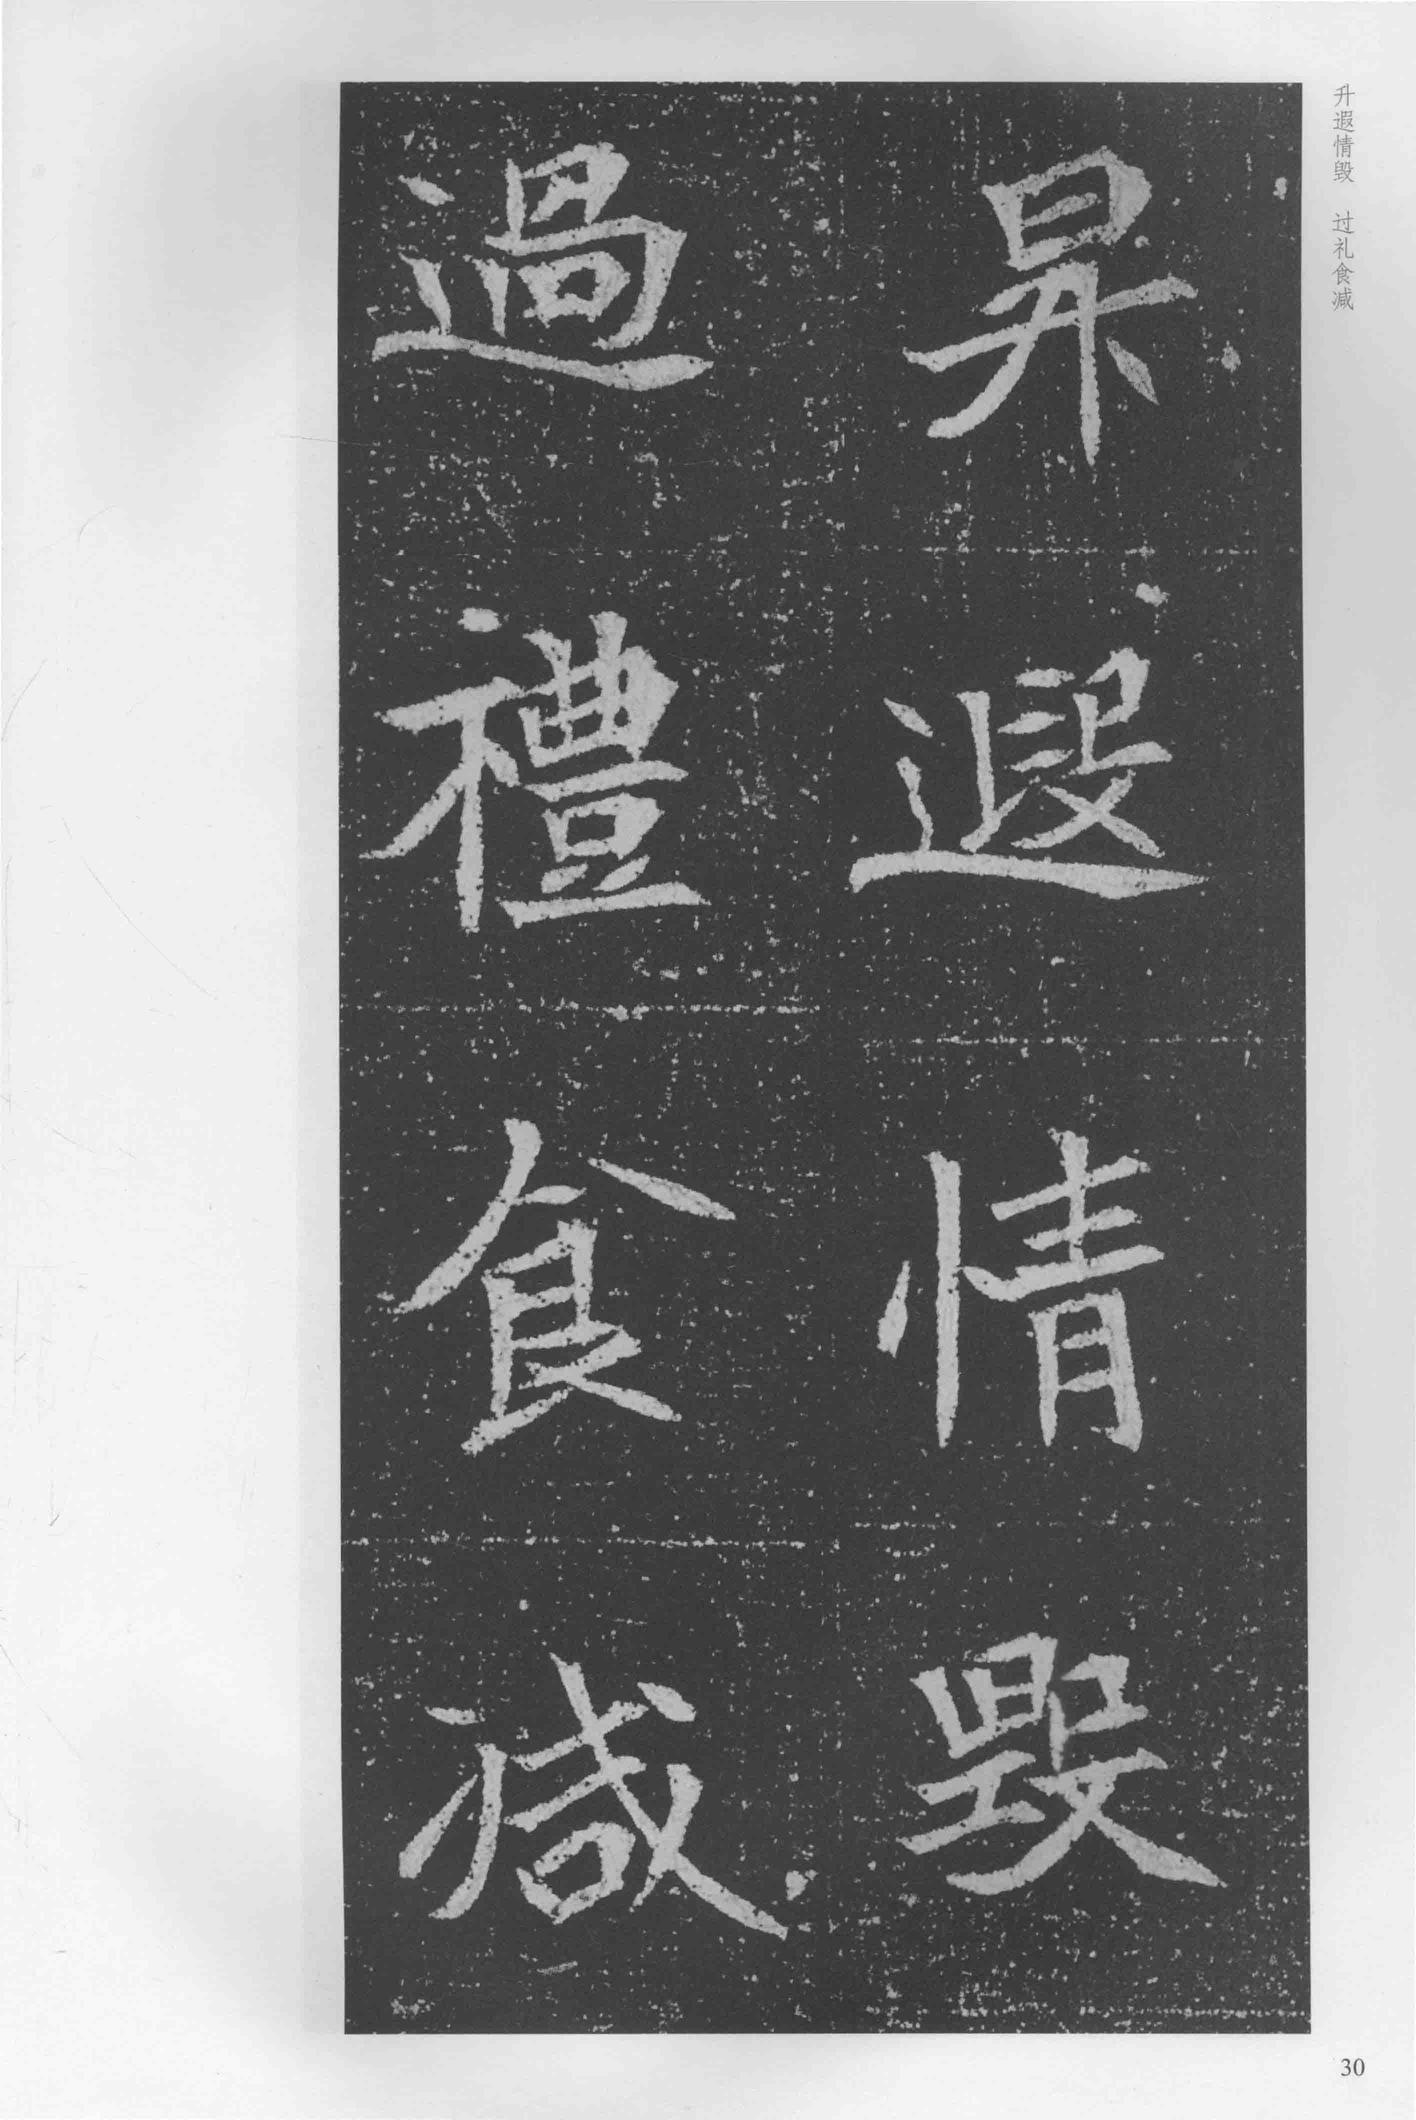 升遐情毁　过礼食减
昇遐情毀
過禮食減
30